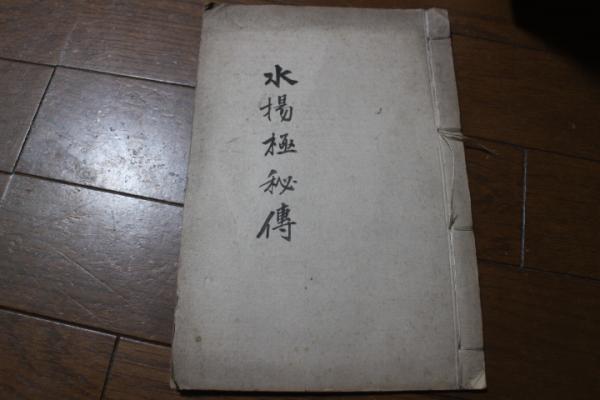 水揚極秘傳